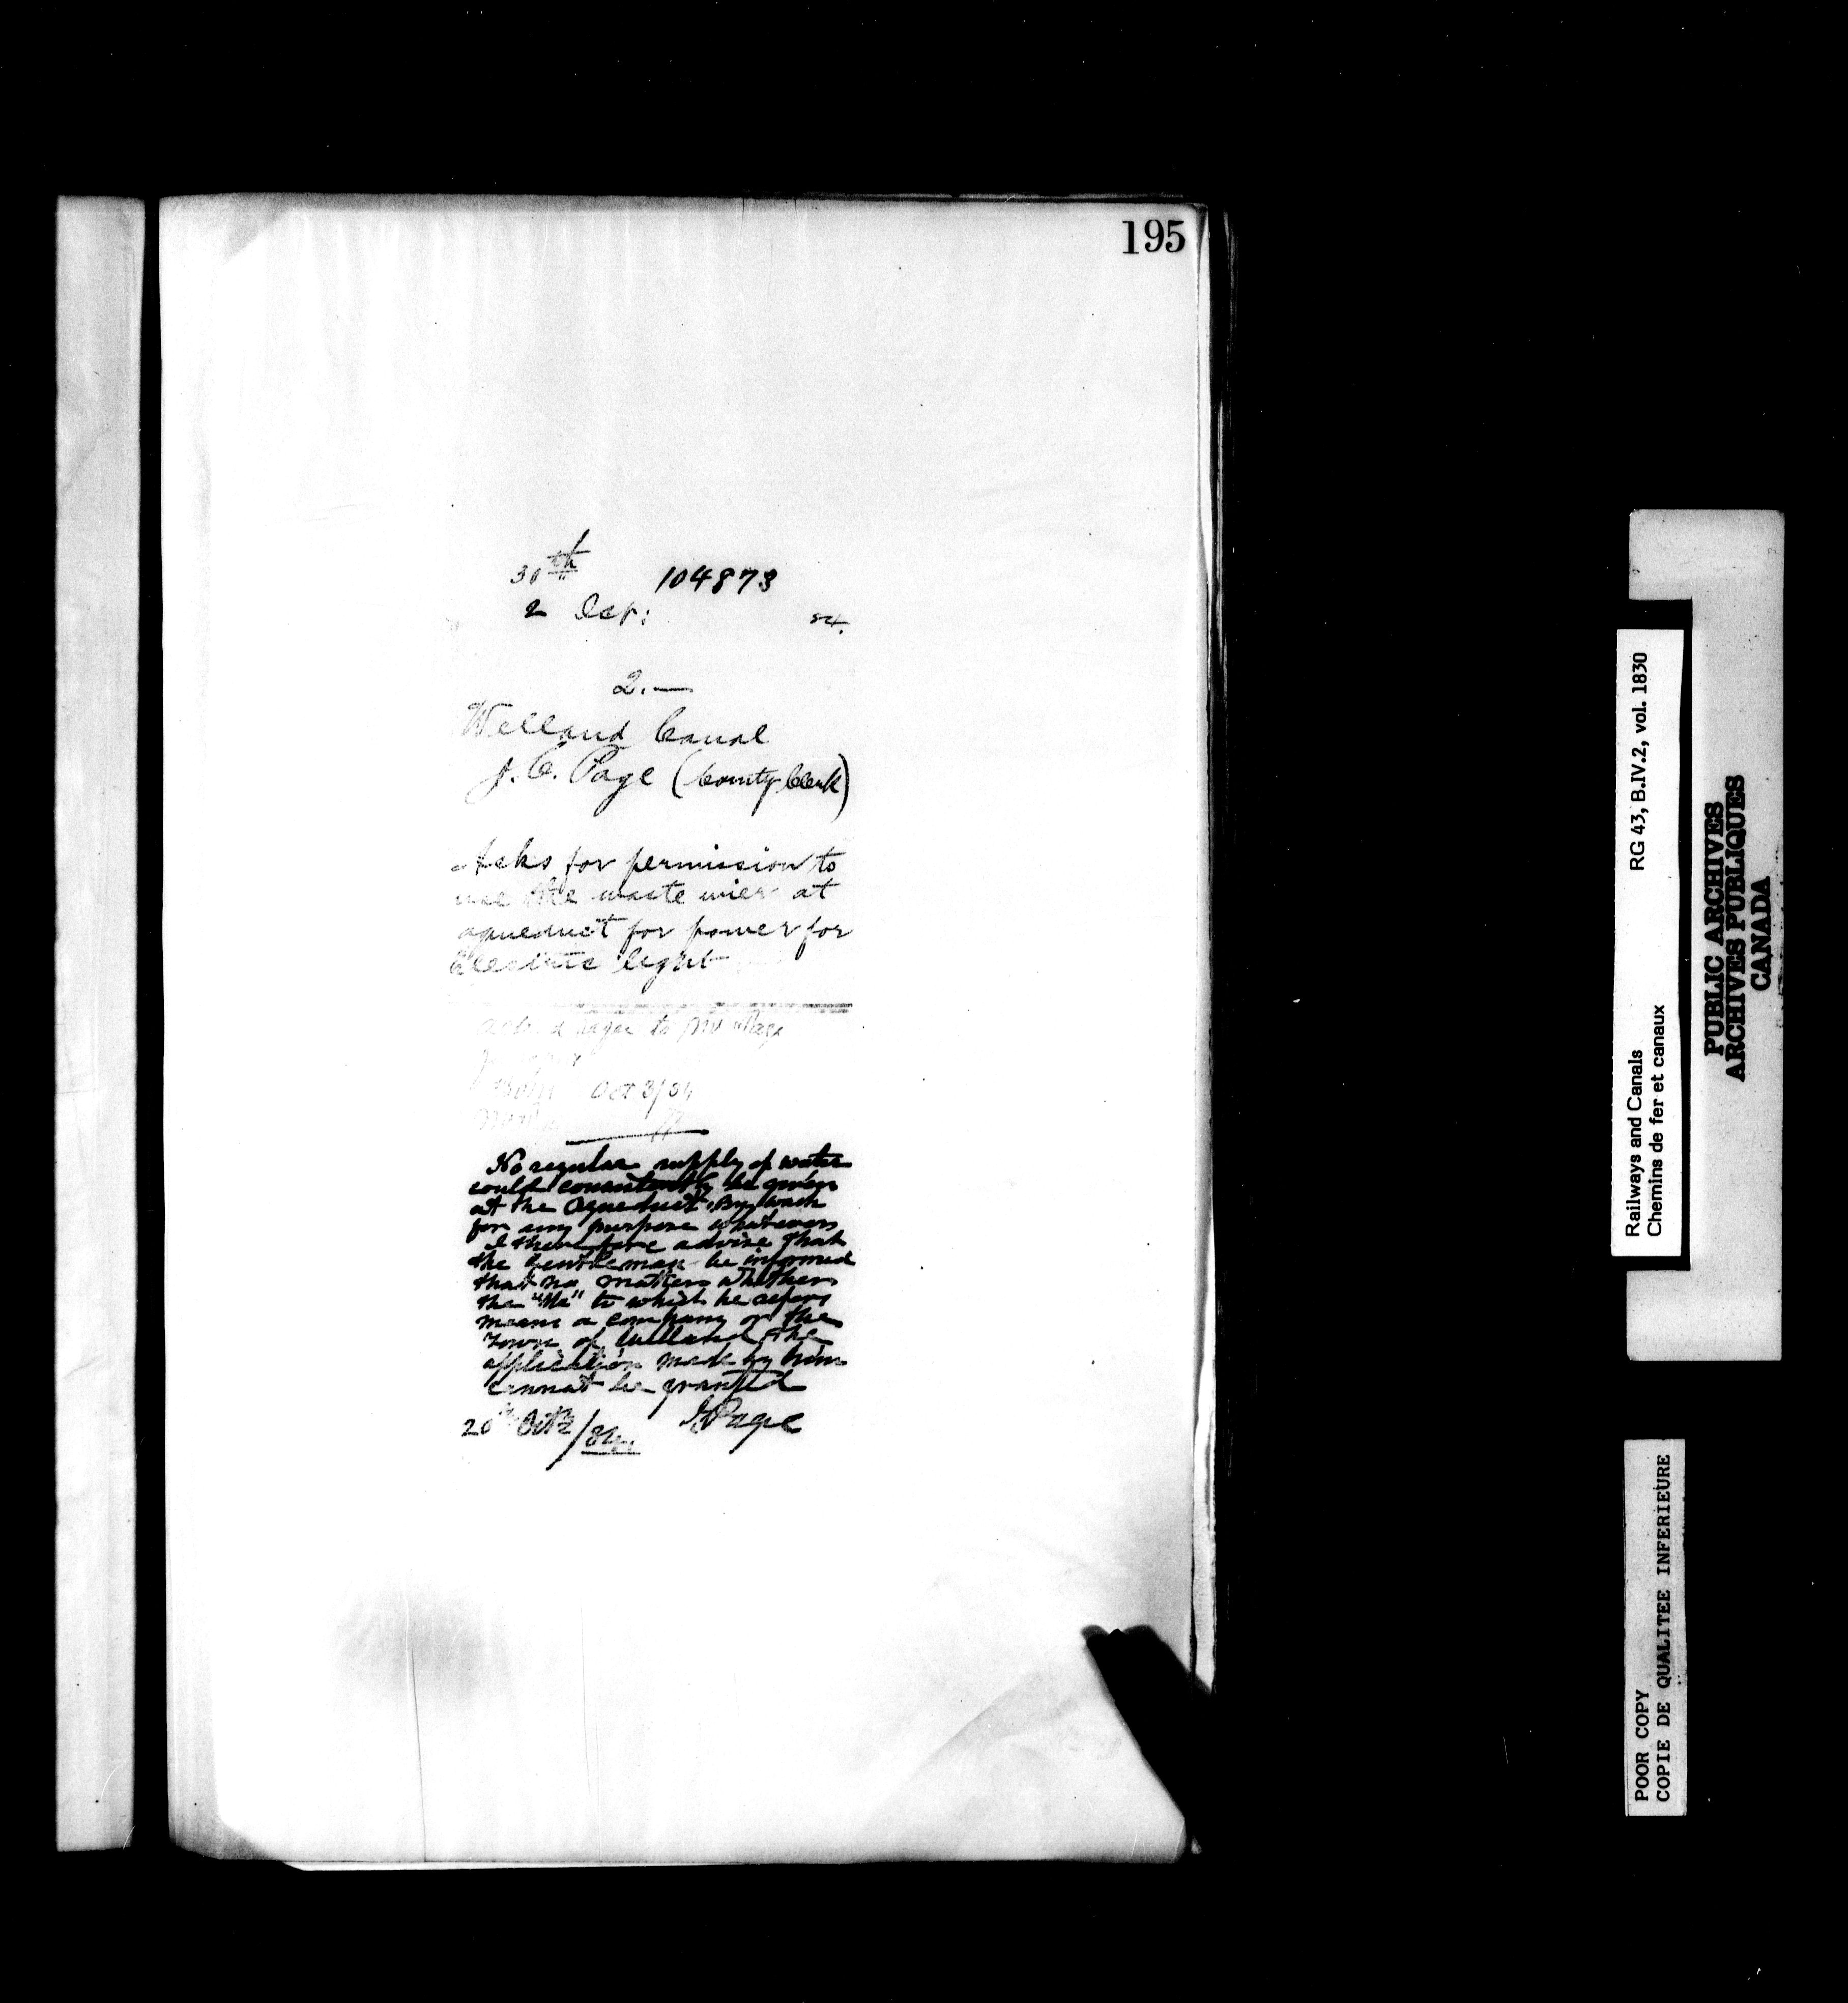 195
30th 104873
2 Oct: 84.
2.—
Welland Canal
J. C. Page (County Clerk)
Asks for permission to
use the waste wier at
aqueduct for power for
Electric light
to Mr Page
Oct 3/84
No regular supply of water
could consistently be given
at the Aqueduct By wash
for any purpose whatever
I therefore advise that
the gentleman be informed
that no matter whether
the "We" to which he refers
means a company or the
Town of Welland, the
application made by him
cannot be granted
20th Octr/84. JPage
Railways and Canals RG 43, B.IV.2, vol. 1830
Chemins de fer et canaux
PUBLIC ARCHIVES
ARCHIVES PUBLIQUES
CANADA
POOR COPY
COPIE DE QUALITEE INFERIEURE